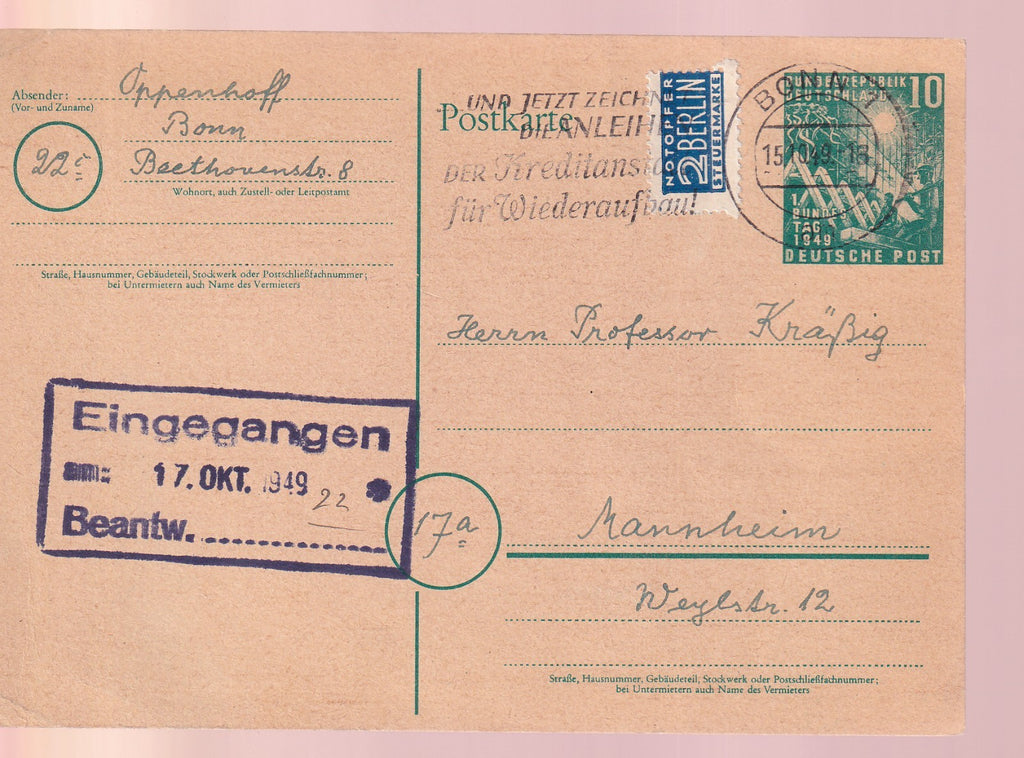 Absender: Oppenhoff
(Vor- und Zuname)
Bonn
22c
Beethovenstr. 8
Wohnort, auch Zustell- oder Leitpostamt
Straße, Hausnummer, Gebäudeteil, Stockwerk oder Postschließfachnummer;
bei Untermietern auch Name des Vermieters
Postkarte
UND JETZT ZEICHN
DIE ANLEIHE
DER Kreditanst
für Wiederaufbau!
NOTOPFER
2 BERLIN
STEUERMARKE
BONN
15.10.49.-18
BUNDESREPUBLIK
DEUTSCHLAND
10
1.
BUNDES
TAG
1949
DEUTSCHE POST
Herrn Professor Kräßig
Eingegangen
am: 17. OKT. 1949
22
Beantw.
17a
Mannheim
Weylstr. 12
Straße, Hausnummer, Gebäudeteil, Stockwerk oder Postschließfachnummer;
bei Untermietern auch Name des Vermieters